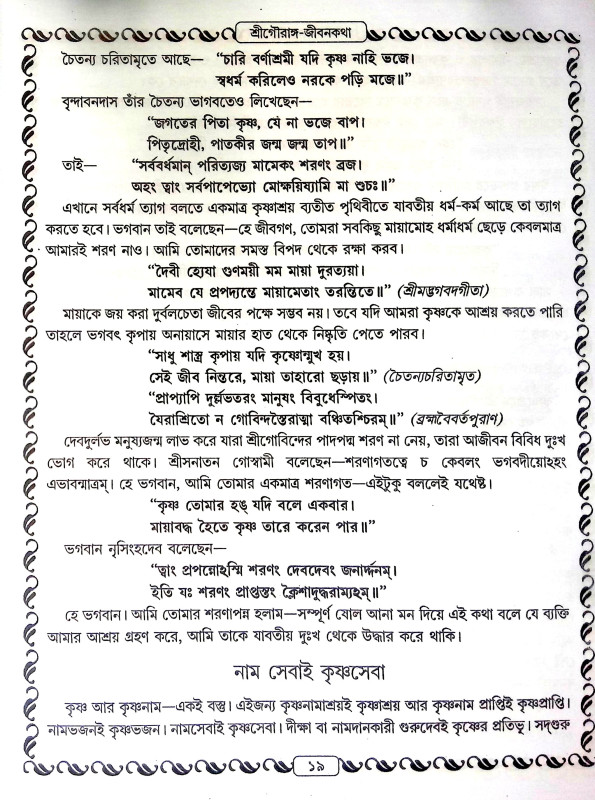 শ্রীগৌরাঙ্গ-জীবনকথা
চৈতন্য চরিতামৃতে আছে— “চারি বর্ণাশ্রমী যদি কৃষ্ণ নাহি ভজে।
স্বধর্ম করিলেও নরকে পড়ি মজে॥”
বৃন্দাবনদাস তাঁর চৈতন্য ভাগবতেও লিখেছেন—
“জগতের পিতা কৃষ্ণ, যে না ভজে বাপ।
পিতৃদ্রোহী, পাতকীর জন্ম জন্ম তাপ॥”
তাই— “সর্ববর্ধমান্ পরিত্যজ্য মামেকং শরণং ব্রজ।
অহং ত্বাং সর্বপাপেভ্যো মোক্ষয়িষ্যামি মা শুচঃ॥”
এখানে সর্বধর্ম ত্যাগ বলতে একমাত্র কৃষ্ণাশ্রয় ব্যতীত পৃথিবীতে যাবতীয় ধর্ম-কর্ম আছে তা ত্যাগ
করতে হবে। ভগবান তাই বলেছেন—হে জীবগণ, তোমরা সবকিছু মায়ামোহ ধর্মাধর্ম ছেড়ে কেবলমাত্র
আমারই শরণ নাও। আমি তোমাদের সমস্ত বিপদ থেকে রক্ষা করব।
“দৈবী হ্যেষা গুণময়ী মম মায়া দুরত্যয়া।
মামেব যে প্রপদ্যন্তে মায়ামেতাং তরন্তিতে॥” (শ্রীমদ্ভগবদগীতা)
মায়াকে জয় করা দুর্বলচেতা জীবের পক্ষে সম্ভব নয়। তবে যদি আমরা কৃষ্ণকে আশ্রয় করতে পারি
তাহলে ভগবৎ কৃপায় অনায়াসে মায়ার হাত থেকে নিষ্কৃতি পেতে পারব।
“সাধু শাস্ত্র কৃপায় যদি কৃষ্ণোন্মুখ হয়।
সেই জীব নিস্তরে, মায়া তাহারো ছড়ায়॥” (চৈতন্যচরিতামৃত)
“প্রাপ্যাপি দুর্ল্লভতরং মানুষং বিবুধেস্পিতং।
যৈরাশ্রিতো ন গোবিন্দস্তৈরাত্মা বঞ্চিতশ্চিরম্॥” (ব্রহ্মবৈবর্তপুরাণ)
দেবদুর্লভ মনুষ্যজন্ম লাভ করে যারা শ্রীগোবিন্দের পাদপদ্ম শরণ না নেয়, তারা আজীবন বিবিধ দুঃখ
ভোগ করে থাকে। শ্রীসনাতন গোস্বামী বলেছেন—শরণাগতত্বে চ কেবলং ভগবদীয়োঽহং
এভাবন্মাত্রম্। হে ভগবান, আমি তোমার একমাত্র শরণাগত—এইটুকু বললেই যথেষ্ট।
“কৃষ্ণ তোমার হঙ্ যদি বলে একবার।
মায়াবদ্ধ হৈতে কৃষ্ণ তারে করেন পার॥”
ভগবান নৃসিংহদেব বলেছেন—
“ত্বাং প্রপন্নোঽস্মি শরণং দেবদেবং জনার্দ্দনম্।
ইতি যঃ শরণং প্রাপ্তস্তং ক্লৈশাদুদ্ধরাম্যহম্॥”
হে ভগবান। আমি তোমার শরণাপন্ন হলাম—সম্পূর্ণ ষোল আনা মন দিয়ে এই কথা বলে যে ব্যক্তি
আমার আশ্রয় গ্রহণ করে, আমি তাকে যাবতীয় দুঃখ থেকে উদ্ধার করে থাকি।
নাম সেবাই কৃষ্ণসেবা
কৃষ্ণ আর কৃষ্ণনাম—একই বস্তু। এইজন্য কৃষ্ণনামাশ্রয়ই কৃষ্ণাশ্রয় আর কৃষ্ণনাম প্রাপ্তিই কৃষ্ণপ্রাপ্তি।
নামভজনই কৃষ্ণভজন। নামসেবাই কৃষ্ণসেবা। দীক্ষা বা নামদানকারী গুরুদেবই কৃষ্ণের প্রতিভূ। সদ্‌গুরু
১৯